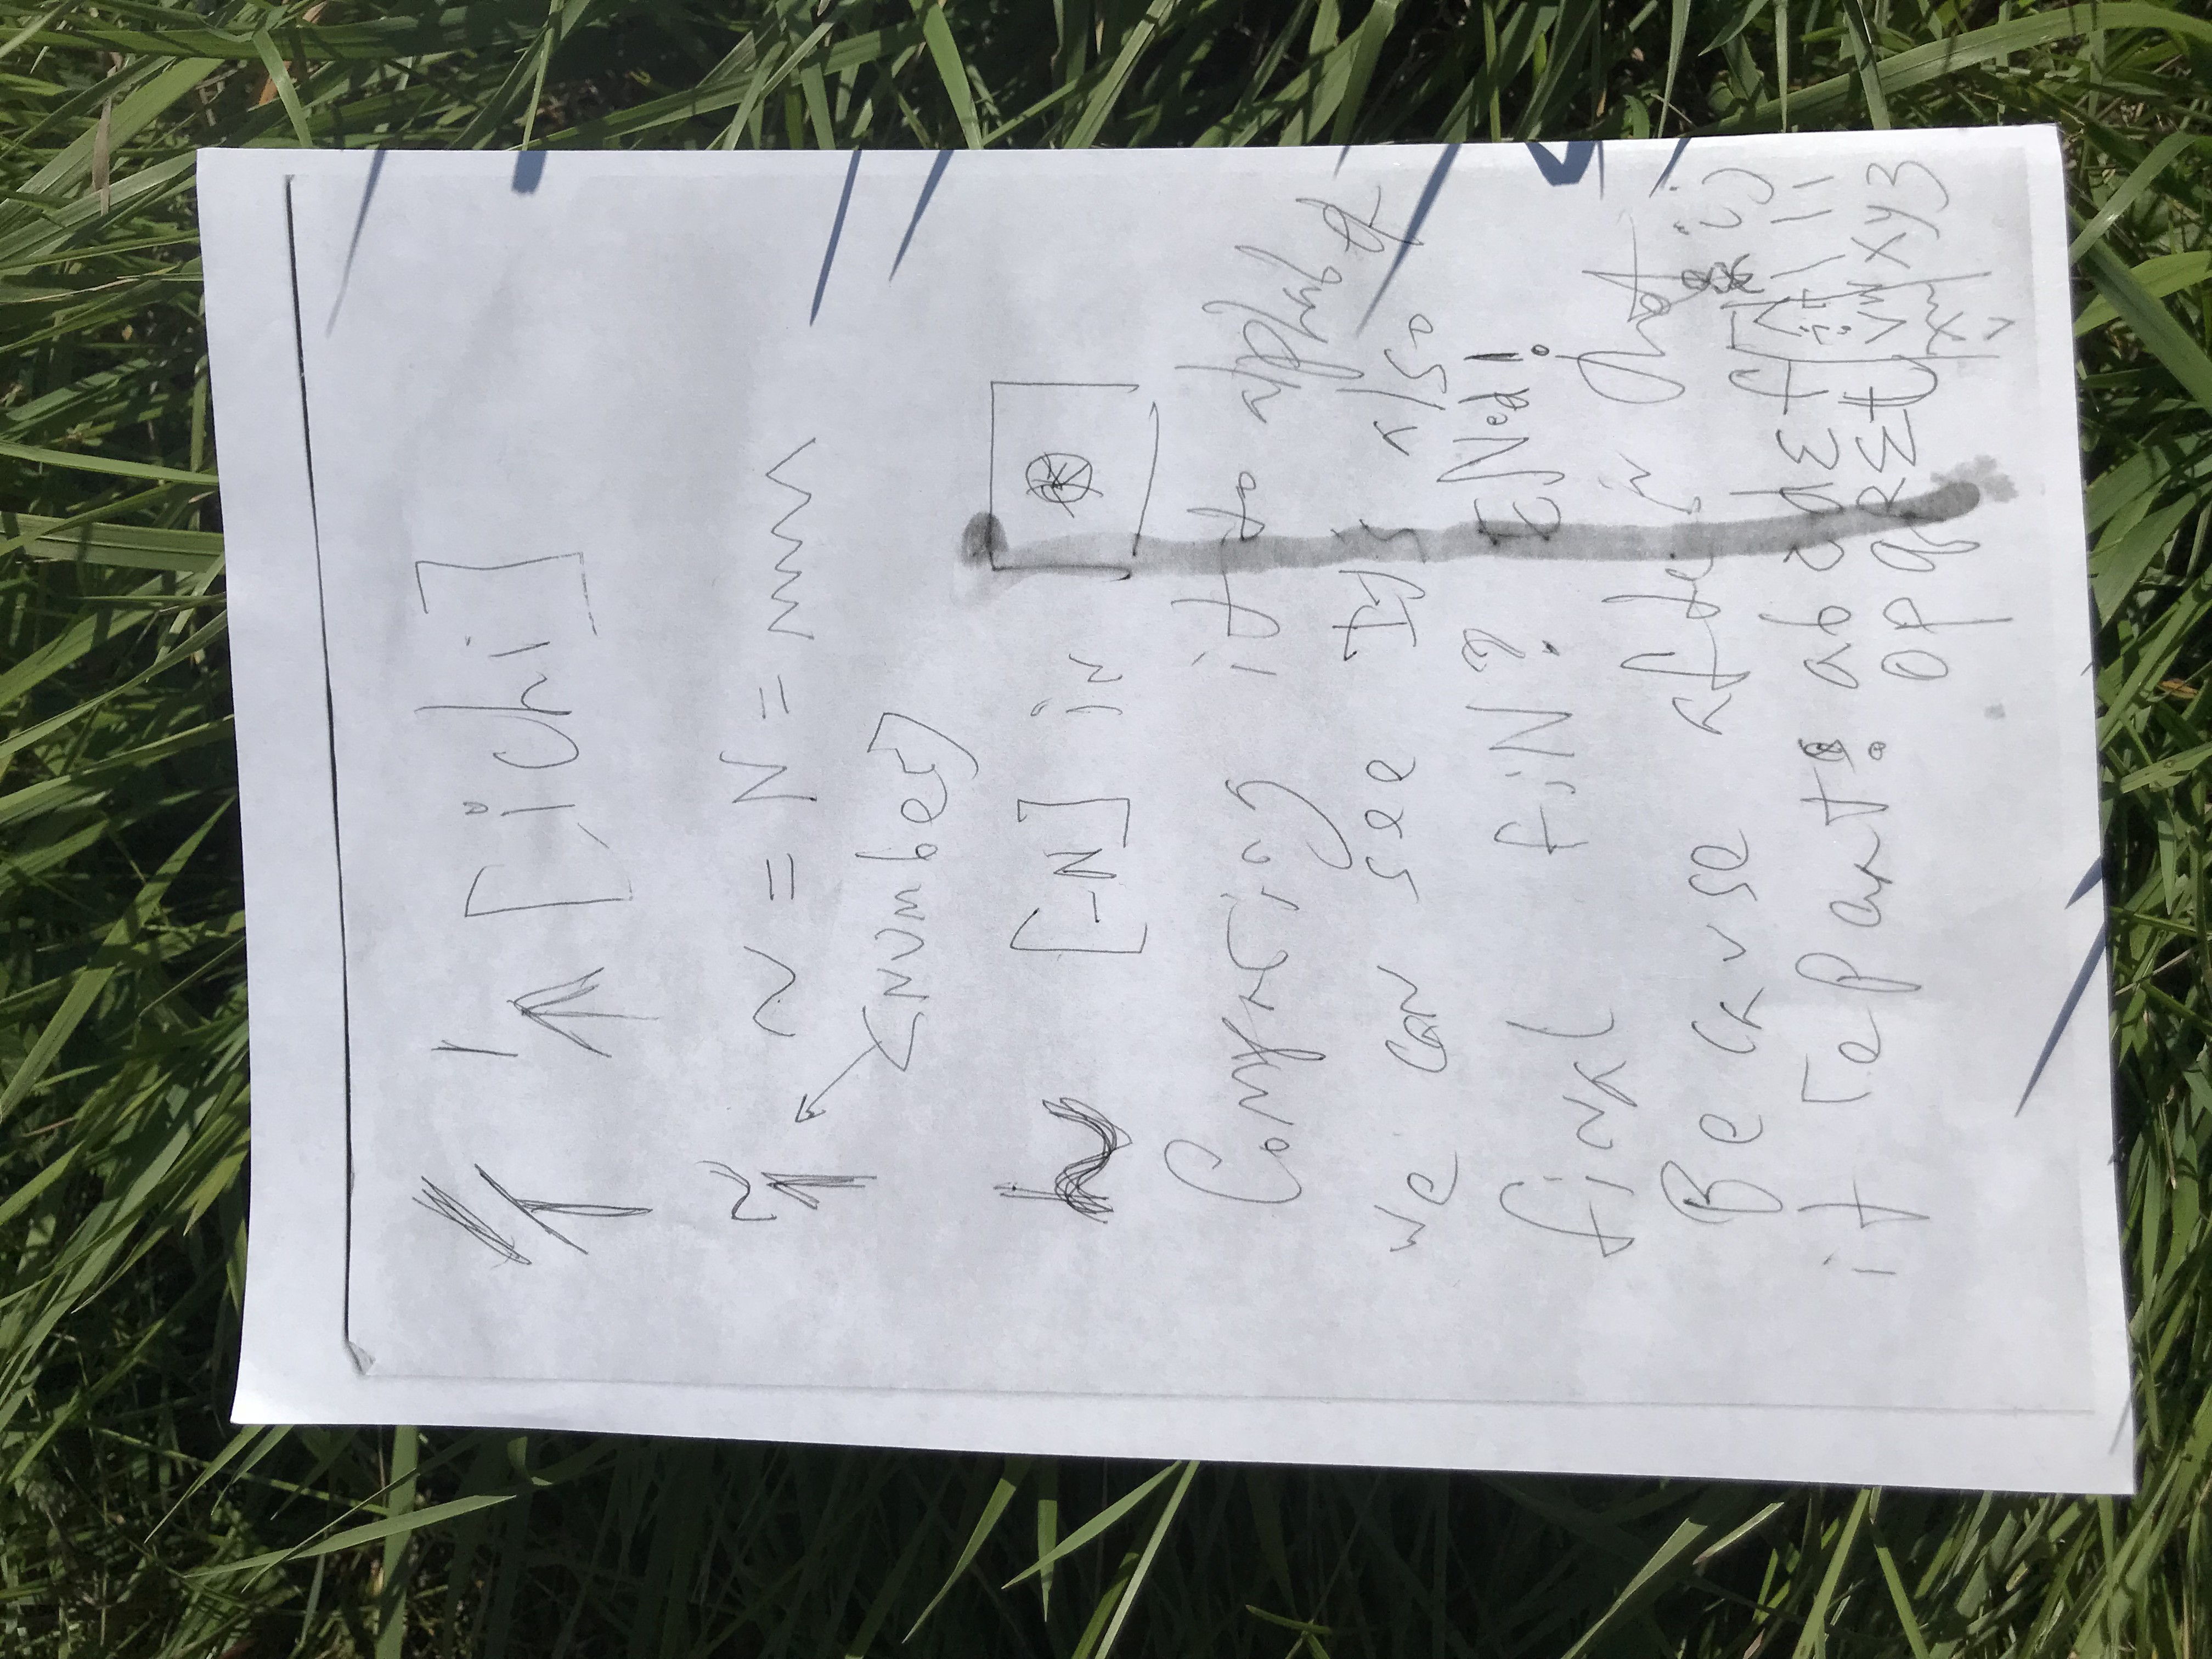 ↑ [ichi]
~ = N =
(number)
[-N] in
Comparing it to alphabet
we can see It's also
final fiN? ENed!
Because after in that
ij
it repeart: abcdεf
opqRΣt vw xyz